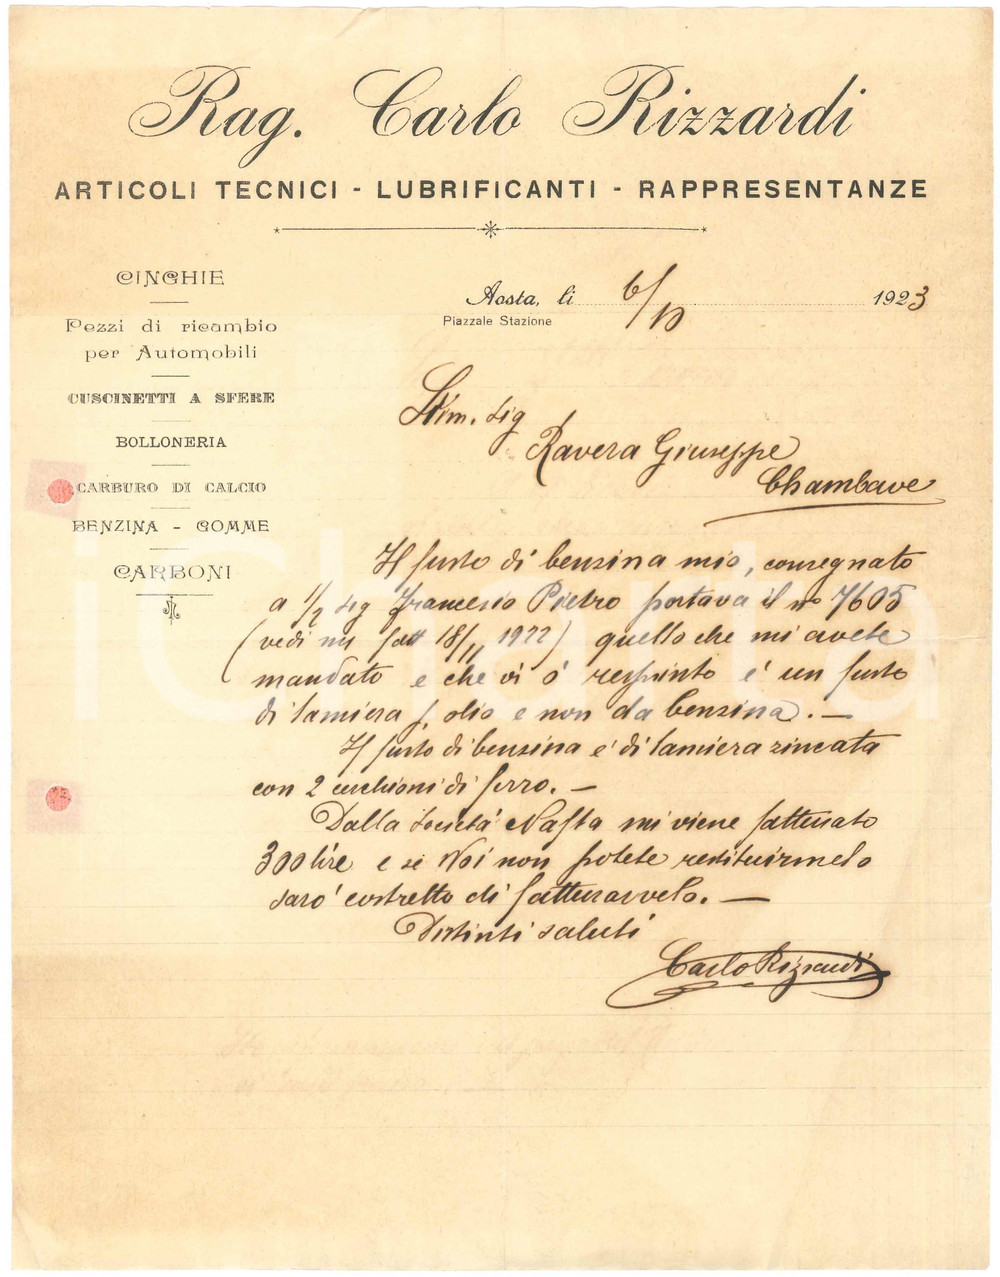 Rag. Carlo Rizzardi
ARTICOLI TECNICI - LUBRIFICANTI - RAPPRESENTANZE
CINGHIE
Pezzi di ricambio
per Automobili
CUSCINETTI A SFERE
BOLLONERIA
CARBURO DI CALCIO
BENZINA - GOMME
CARBONI
Aosta, li 6/10 1923
Piazzale Stazione
Stim. sig
Ravera Giuseppe
Chambave
Il fusto di benzina mio, consegnato
a 1/2 sig Francesio Pietro portava il no 7605
(vedi mi fatt 18/11 1922) quello che mi avete
mandato e che vi ó respinto é un fusto
di lamiera p. olio e non da benzina. —
Il fusto di benzina é di lamiera zincata
con 2 cerchioni di ferro. —
Dalla Societá Nafta mi viene fatturato
300 lire e se Noi non potete restituirmelo
saró costretto di fatturarvelo. —
Distinti saluti
Carlo Rizzardi
iCharta